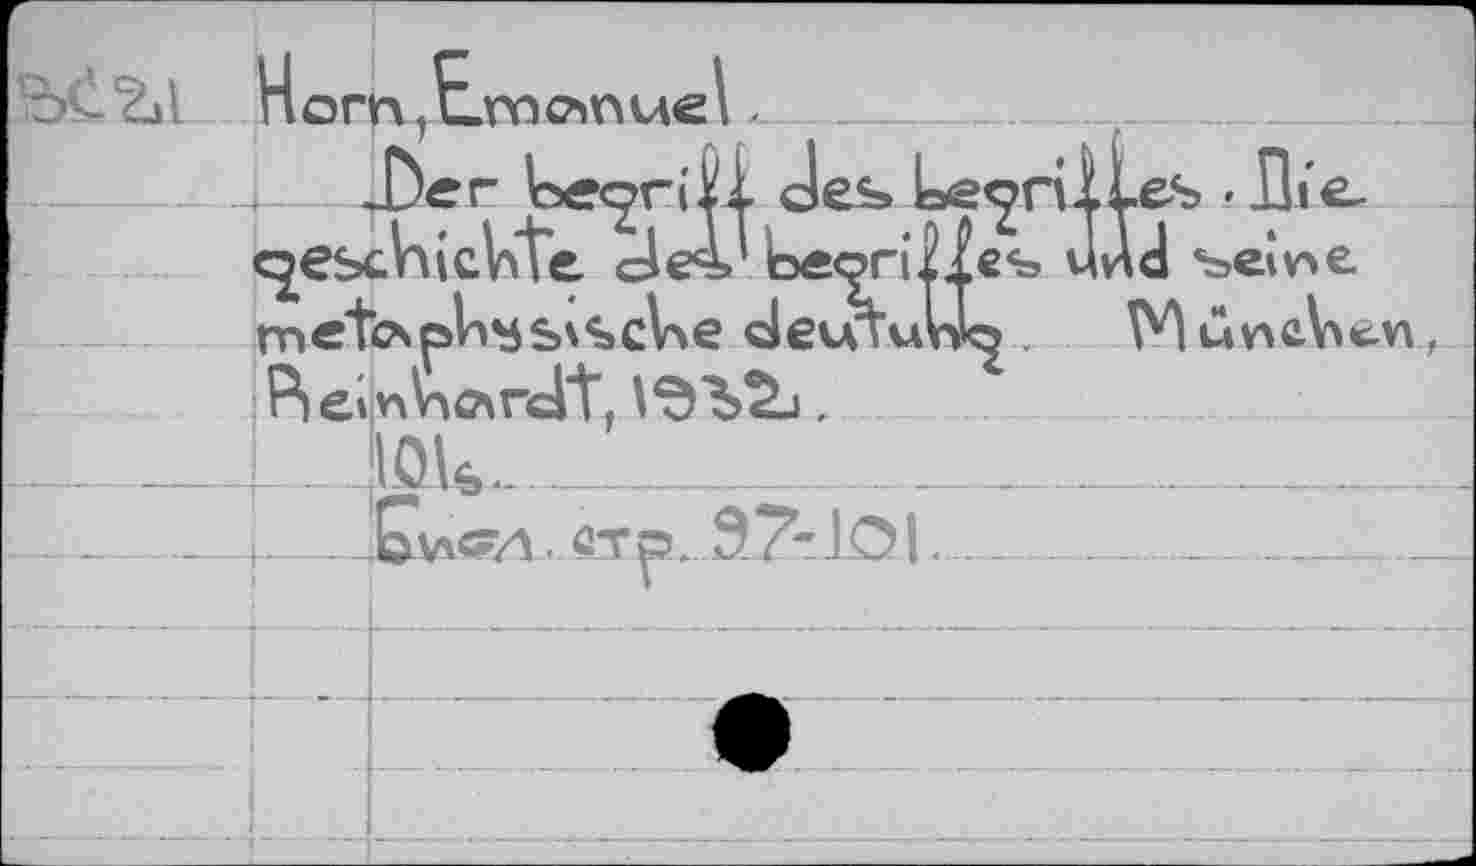 Horn, Emanuel.
Der begriff des begriffes. Die
geschichte des begriffes und seine
metaphysische deutung. München,
Reinhardt, 1932.
101s.
Библ. стр. 97-101.